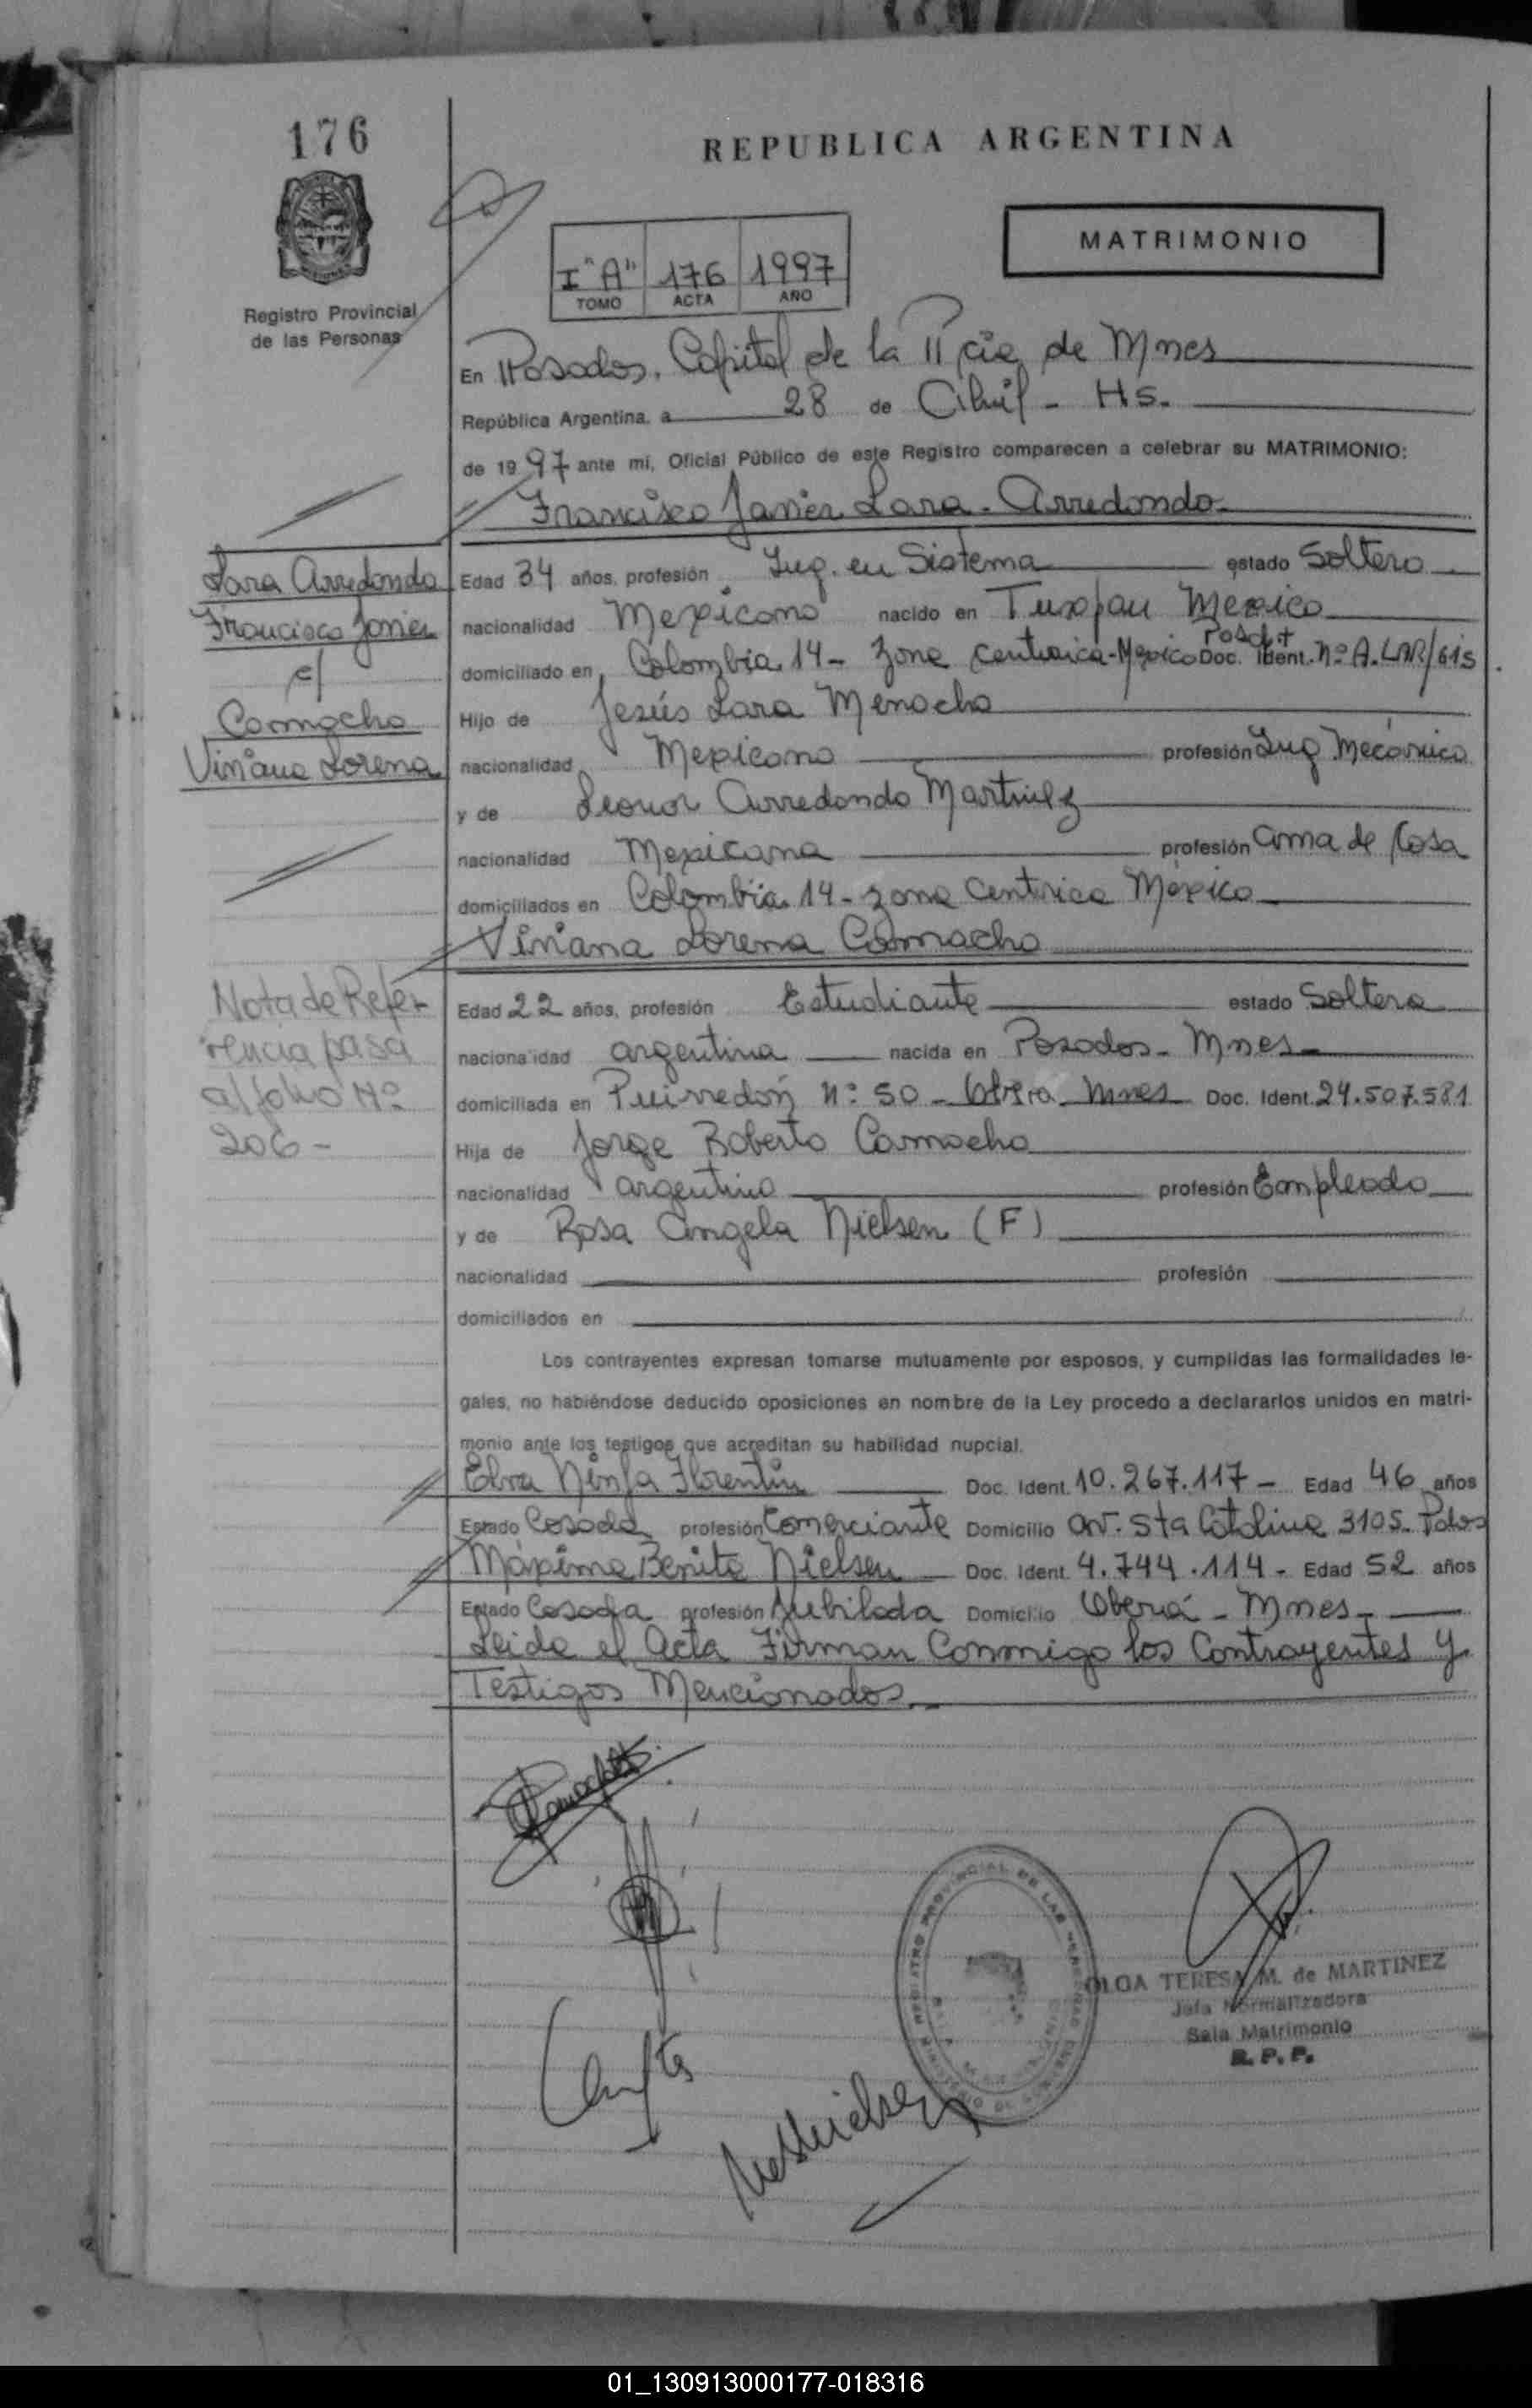 176
REPUBLICA ARGENTINA
MATRIMONIO
I "A" 176 1997
TOMO ACTA AÑO
Registro Provincial
de las Personas
En Posadas, Capital de la Pcia de Mnes
República Argentina, a 28 de Abril - Hs.
de 1997 ante mi, Oficial Público de este Registro comparecen a celebrar su MATRIMONIO:
Francisco Javier Lara - Arredondo
Lara Arredondo
Francisco Javier
c/
Camacho
Viviana Lorena
Edad 34 años, profesión Ing. en Sistema estado Soltero
nacionalidad Mexicano nacido en Tuxpan Mexico
domiciliado en Colombia 14 - Zona centrica - Mexico Doc. Ident. Nº A.LAR/615
Hijo de Jesús Lara Menocho
nacionalidad Mexicano profesión Ing Mecánico
y de Leonor Arredondo Martinez
nacionalidad Mexicana profesión ama de Casa
domiciliados en Colombia 14 - zona Centrica México
Viviana Lorena Camacho
Nota de Refe-
rencia pasa
al folio Nº
206 -
Edad 22 años, profesión Estudiante estado Soltera
nacionalidad argentina nacida en Posadas - Mnes -
domiciliada en Puirredón Nº 50 - Mnes Doc. Ident. 24.507.581
Hija de Jorge Roberto Camacho
nacionalidad argentino profesión Empleado
y de Rosa Angela Nielsen (F)
nacionalidad profesión
domiciliados en
Los contrayentes expresan tomarse mutuamente por esposos, y cumplidas las formalidades le-
gales, no habiéndose deducido oposiciones en nombre de la Ley procedo a declararlos unidos en matri-
monio ante los testigos que acreditan su habilidad nupcial.
Elva Ninfa Florentin Doc. Ident. 10.267.117 - Edad 46 años
Estado Casada profesión Comerciante Domicilio av. Sta Catalina 3105. Pdas
Máxima Benita Nielsen Doc. Ident. 4.744.114 - Edad 52 años
Estado Casada profesión Jubilada Domicilio Oberá - Mnes -
Leida el Acta Firman Conmigo los Contrayentes y
Testigos Mencionados
OLGA TERESA M. de MARTINEZ
Jefa Normalizadora
Sala Matrimonio
R. P. P.
01_130913000177-018316